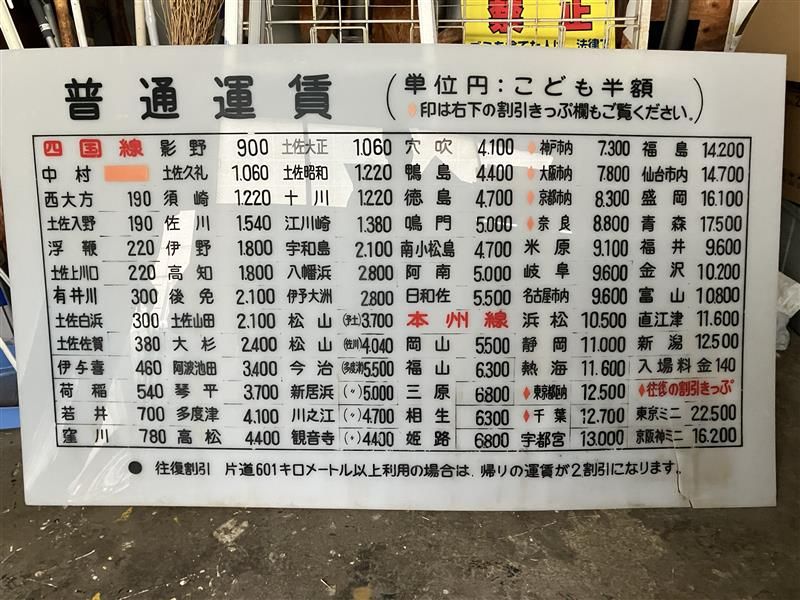 禁止
普通運賃 (単位円：こども半額
♦印は右下の割引きっぷ欄もご覧ください。)
四国線 影野 900 土佐大正 1.060 穴吹 4.100 ♦神戸市内 7.300 福島 14.200
中村 土佐久礼 1.060 土佐昭和 1.220 鴨島 4.400 ♦大阪市内 7.800 仙台市内 14.700
西大方 190 須崎 1.220 十川 1.220 徳島 4.700 ♦京都市内 8.300 盛岡 16.100
土佐入野 190 佐川 1.540 江川崎 1.380 鳴門 5.000 ♦奈良 8.800 青森 17.500
浮鞭 220 伊野 1.800 宇和島 2.100 南小松島 4.700 米原 9.100 福井 9.600
土佐上川口 220 高知 1.800 八幡浜 2.800 阿南 5.000 岐阜 9.600 金沢 10.200
有井川 300 後免 2.100 伊予大洲 2.800 日和佐 5.500 名古屋市内 9.600 富山 10.800
土佐白浜 300 土佐山田 2.100 松山 (予土) 3.700 本州線 浜松 10.500 直江津 11.600
土佐佐賀 380 大杉 2.400 松山 (佐川) 4.040 岡山 5.500 静岡 11.000 新潟 12.500
伊与喜 460 阿波池田 3.400 今治 (多度津) 5.500 福山 6.300 熱海 11.600 入場料金 140
荷稲 540 琴平 3.700 新居浜 (〃) 5.000 三原 6.800 ♦東京都内 12.500 ♦往復の割引きっぷ
若井 700 多度津 4.100 川之江 (〃) 4.700 相生 6.300 ♦千葉 12.700 東京ミニ 22.500
窪川 780 高松 4.400 観音寺 (〃) 4.400 姫路 6.800 宇都宮 13.000 京阪神ミニ 16.200
● 往復割引 片道601キロメートル以上利用の場合は、帰りの運賃が2割引になります。